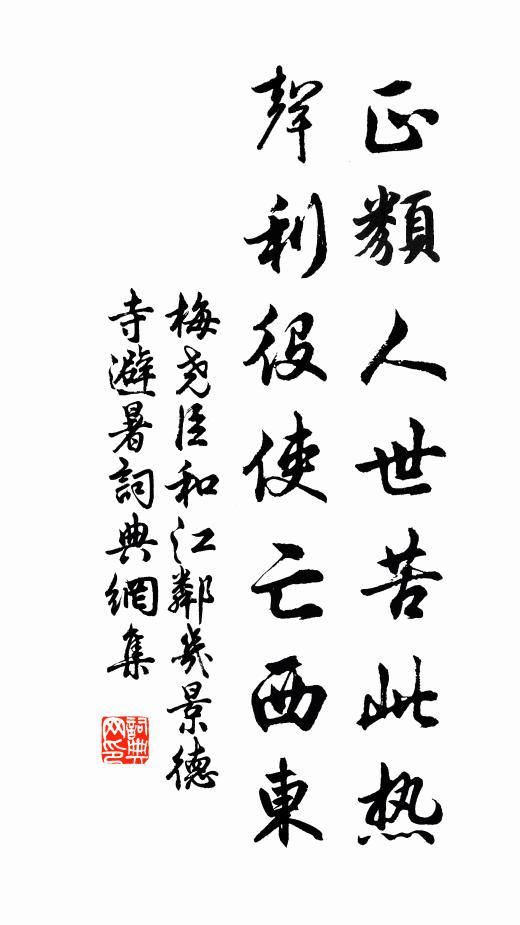 正類人世苦此热
聲利役使亡西東
梅尧臣和江鄰幾景德
寺避暑詞典網集
詞典
网印